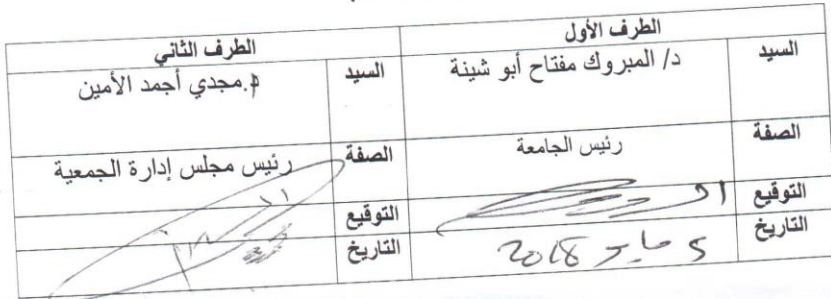 الطرف الأول
الطرف الثاني
السيد
د/ المبروك مفتاح أبو شينة
السيد
أ.مجدي أجمد الأمين
الصفة
رئيس الجامعة
الصفة
رئيس مجلس إدارة الجمعية
التوقيع
التوقيع
التاريخ
5 مايو 2018
التاريخ